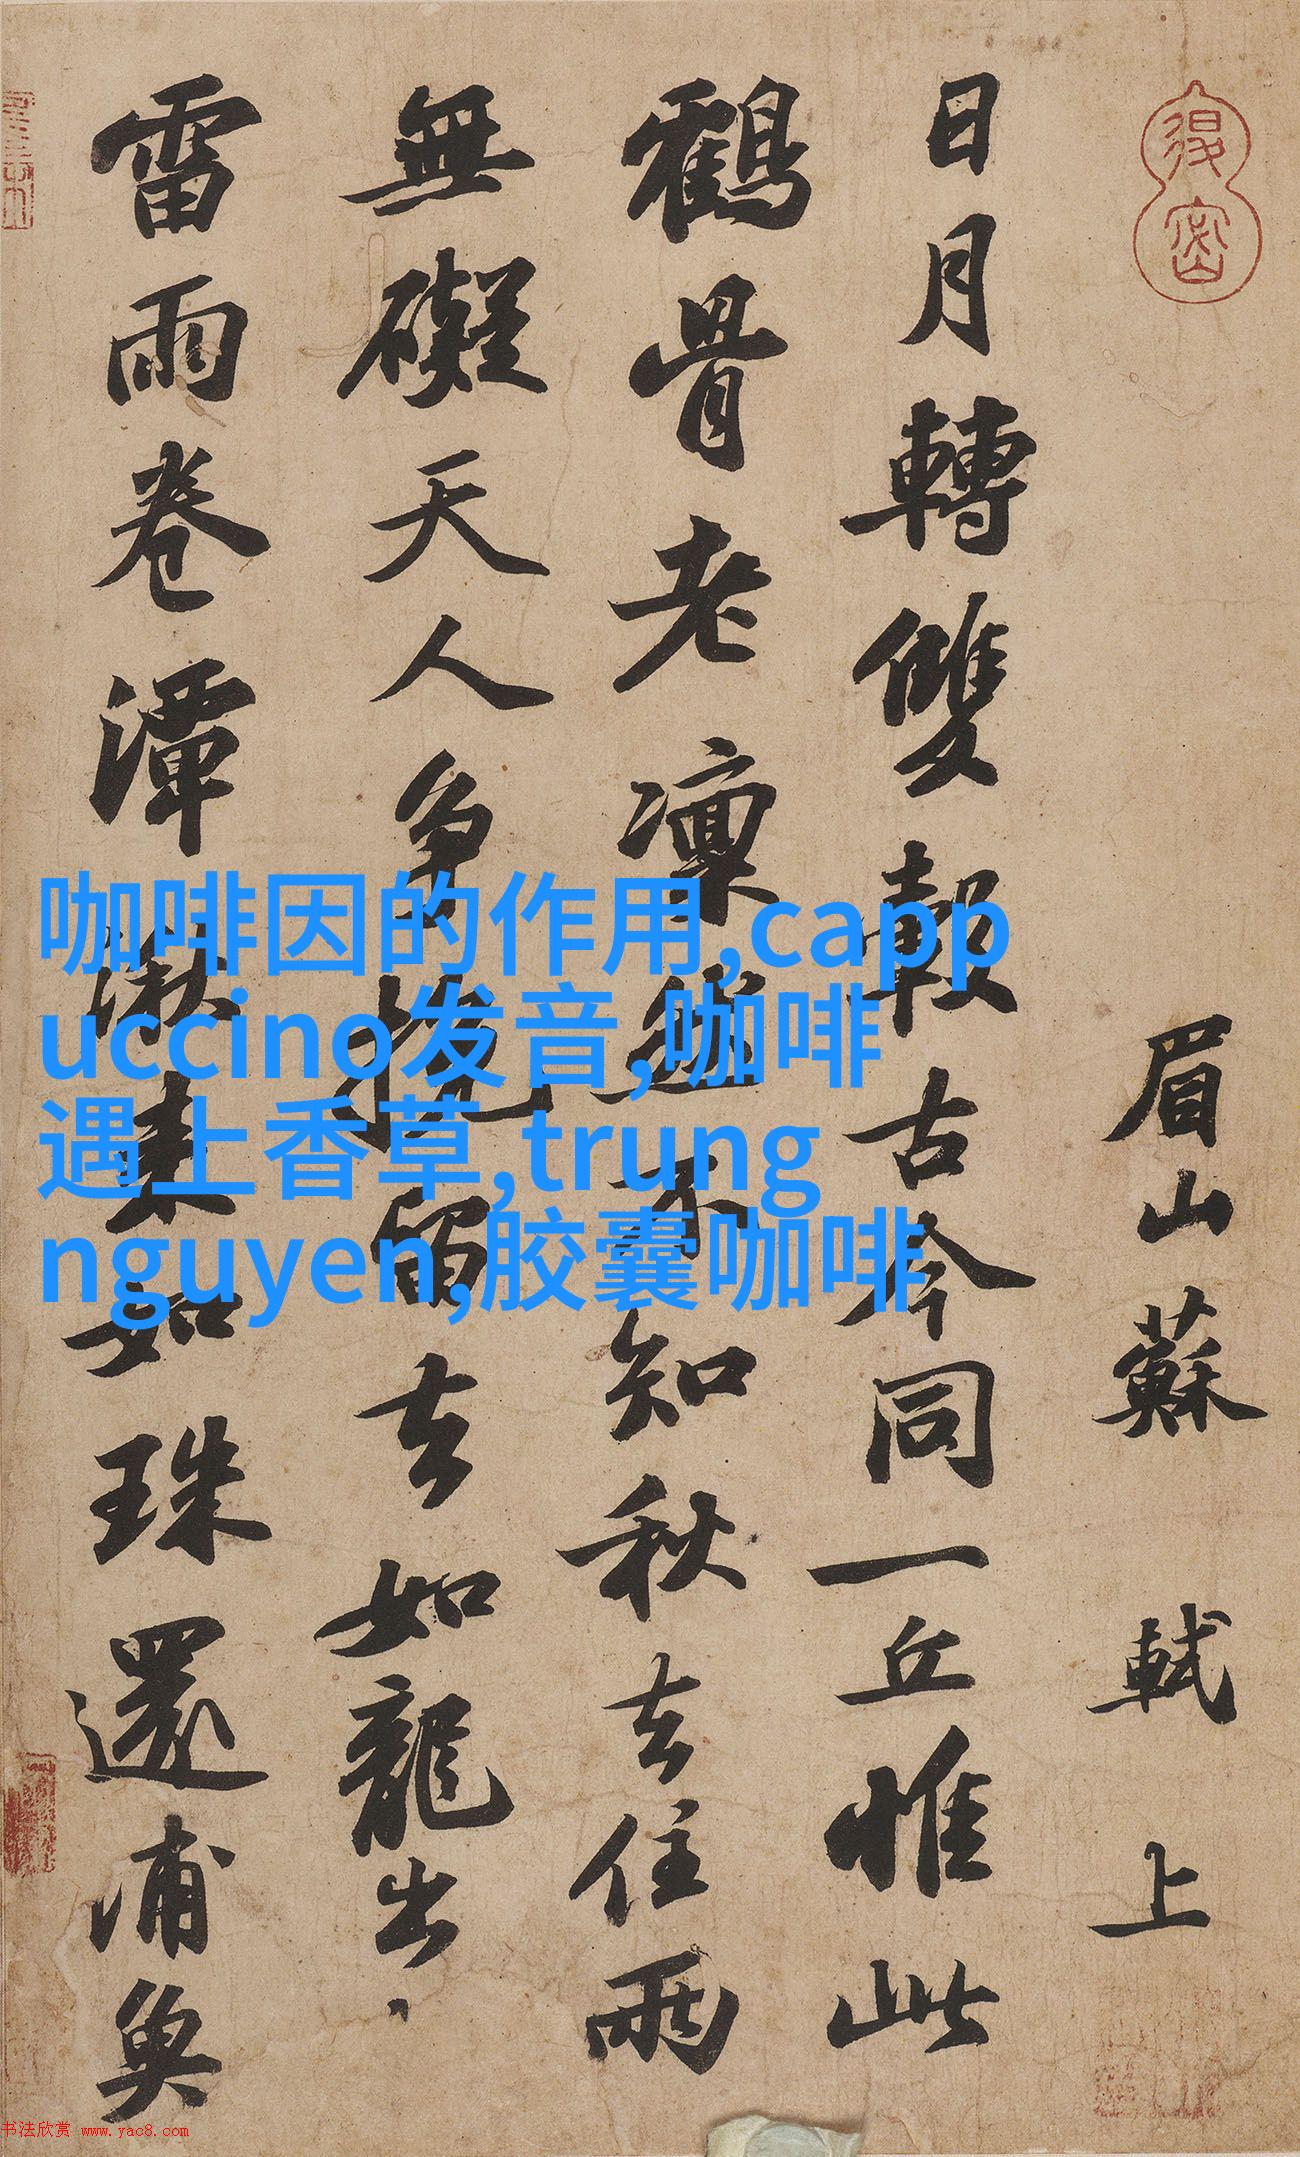 眉山蘇軾上
日月轉雙轂古今同一丘惟此
鶴骨老凜然不知秋去住兩
無礙天人争挽留去如龍出
雷雨卷潭湫来如珠還浦魚
咖啡因的作用,capp
uccino发音,咖啡
遇上香草,trung
nguyen,胶囊咖啡
书法欣赏 www.yac8.com